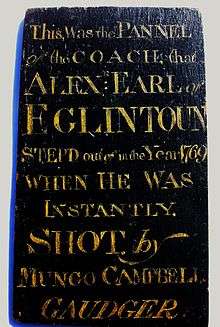 This, Was the PANNEL
of the COACH, that
ALEXR. EARL of
EGLINTOUN
STEP'D out of in the Year 1769
WHEN HE WAS
INSTANTLY.
SHOT, by
MUNGO CAMPBELL,
GAUDGER.